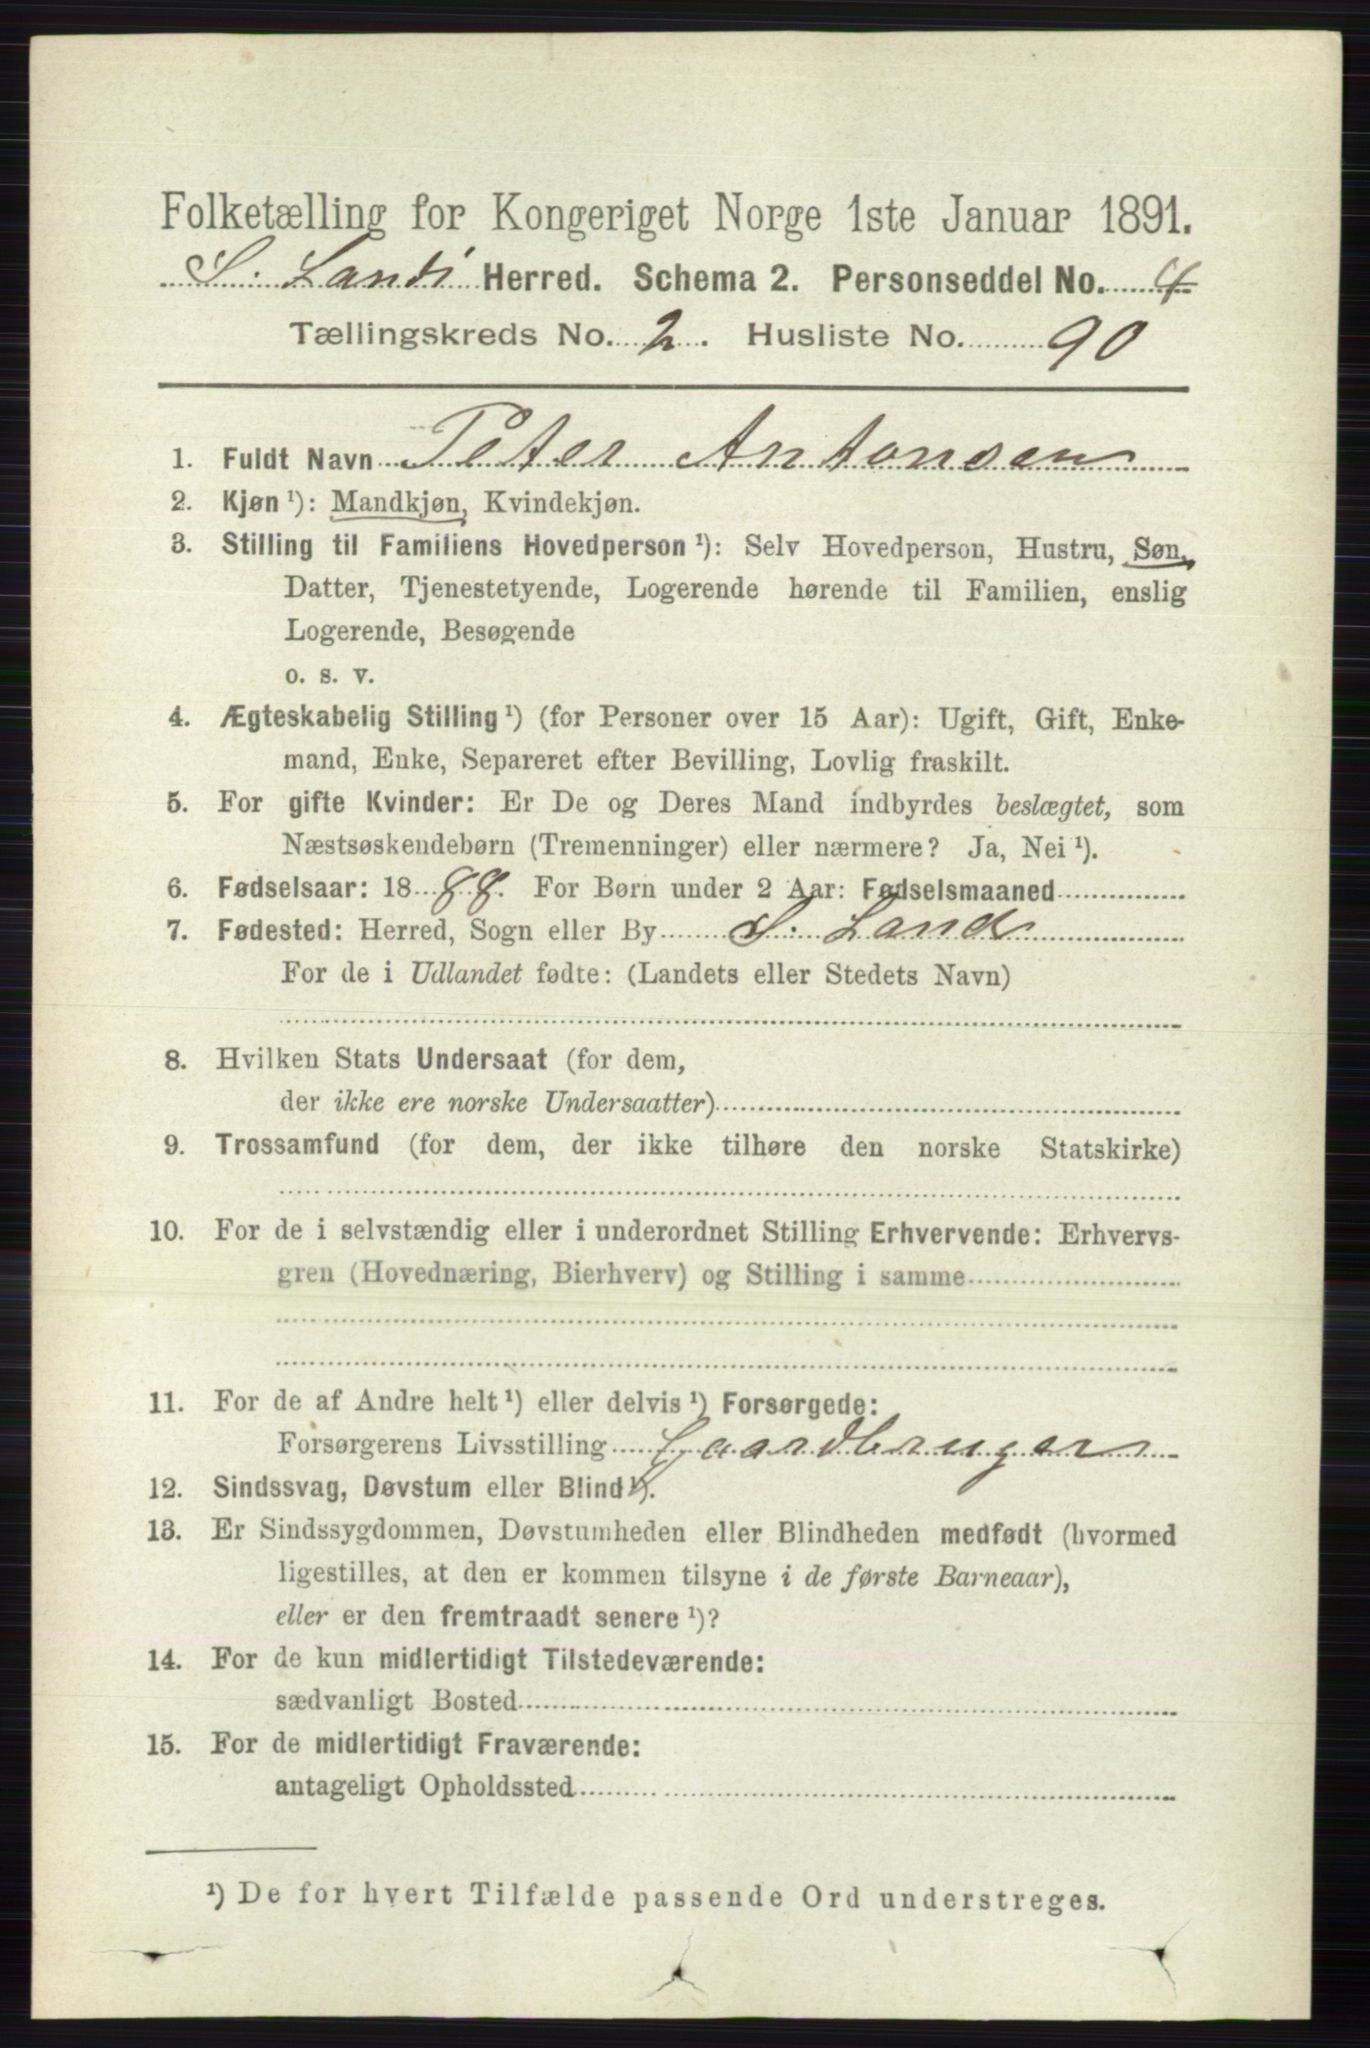 Folketælling for Kongeriget Norge 1ste Januar 1891.
S. Lands Herred. Schema 2. Personseddel No. 4
Tællingskreds No. 2. Husliste No. 90
1. Fuldt Navn Peter Antonsen
2. Kjøn ¹): Mandkjøn, Kvindekjøn.
3. Stilling til Familiens Hovedperson ¹): Selv Hovedperson, Hustru, Søn,
Datter, Tjenestetyende, Logerende hørende til Familien, enslig
Logerende, Besøgende
o. s. v.
4. Ægteskabelig Stilling ¹) (for Personer over 15 Aar): Ugift, Gift, Enke-
mand, Enke, Separeret efter Bevilling, Lovlig fraskilt.
5. For gifte Kvinder: Er De og Deres Mand indbyrdes beslægtet, som
Næstsøskendebørn (Tremenninger) eller nærmere? Ja, Nei ¹).
6. Fødselsaar: 1888. For Børn under 2 Aar: Fødselsmaaned
7. Fødested: Herred, Sogn eller By S. Land
For de i Udlandet fødte: (Landets eller Stedets Navn)
8. Hvilken Stats Undersaat (for dem,
der ikke ere norske Undersaatter)
9. Trossamfund (for dem, der ikke tilhøre den norske Statskirke)
10. For de i selvstændig eller i underordnet Stilling Erhvervende: Erhvervs-
gren (Hovednæring, Bierhverv) og Stilling i samme
11. For de af Andre helt ¹) eller delvis ¹) Forsørgede:
Forsørgerens Livsstilling Gaardbruger
12. Sindssvag, Døvstum eller Blind ¹).
13. Er Sindssygdommen, Døvstumheden eller Blindheden medfødt (hvormed
ligestilles, at den er kommen tilsyne i de første Barneaar),
eller er den fremtraadt senere ¹)?
14. For de kun midlertidigt Tilstedeværende:
sædvanligt Bosted
15. For de midlertidigt Fraværende:
antageligt Opholdssted
¹) De for hvert Tilfælde passende Ord understreges.